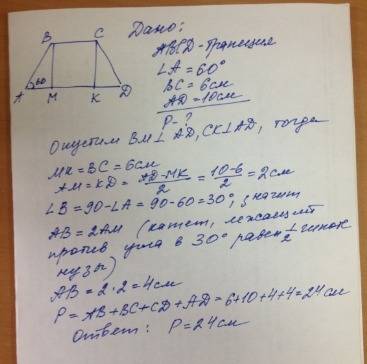 Дано:
ABCD - трапеция
∠A = 60°
BC = 6см
AD = 10см
P - ?
B C
60
A M K D
Опустим BM ⊥ AD, CK ⊥ AD, тогда
MK = BC = 6см
AM = KD = AD-MK/2 = 10-6/2 = 2см
∠B = 90 - ∠A = 90 - 60 = 30°, значит
AB = 2AM (катет, лежащий
против угла в 30° равен 1/2 гипоте
нузы)
AB = 2·2 = 4см
P = AB + BC + CD + AD = 6 + 10 + 4 + 4 = 24см
Ответ: P = 24см